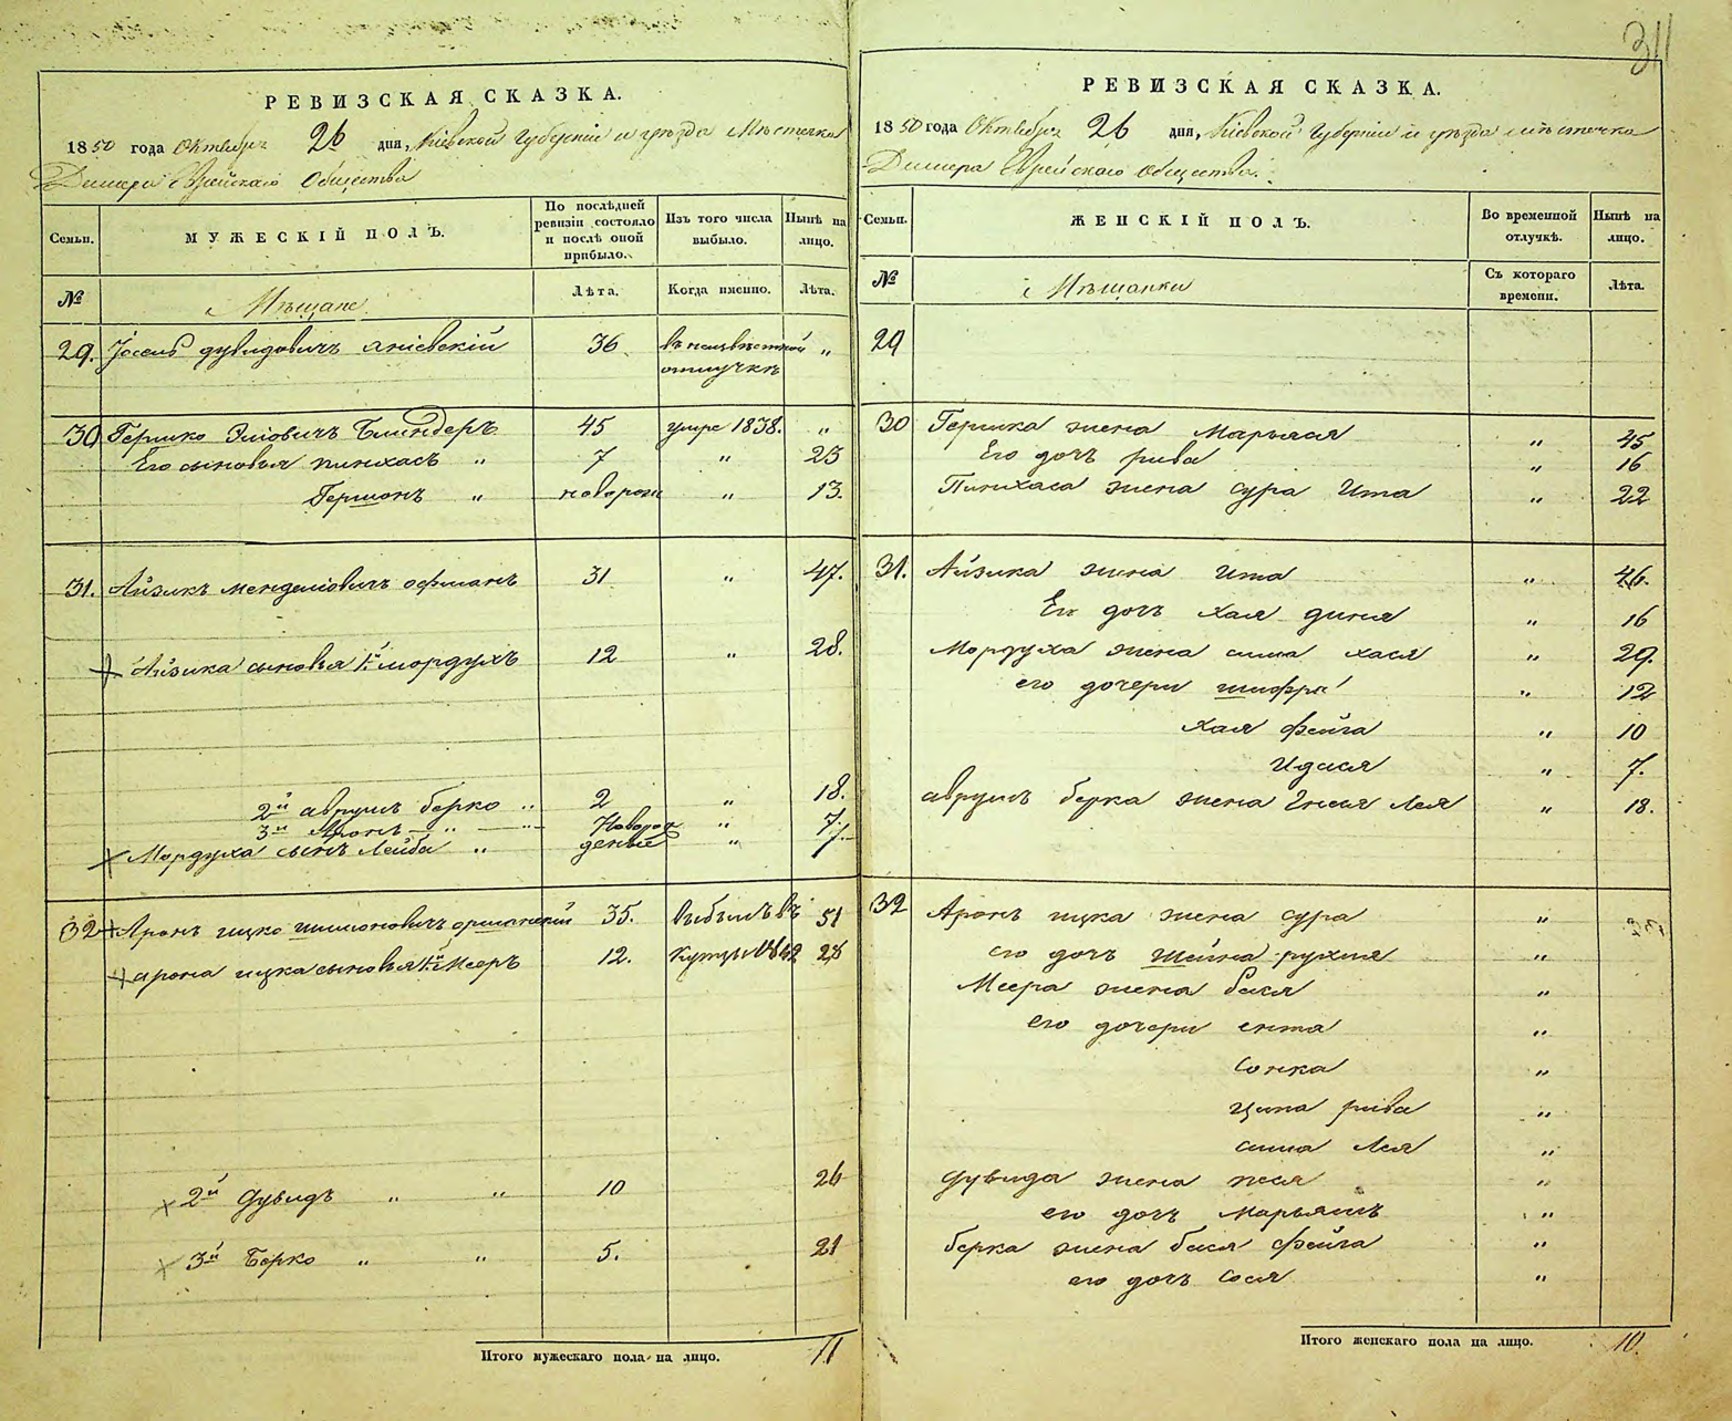 311
РЕВИЗСКАЯ СКАЗКА.
1850 года Октября 26 дня, Кіевской Губерніи и уѣзда Мѣстечка
Димера Еврейскаго Общества
Семьи.
МУЖЕСКІЙ ПОЛЪ.
По послѣдней ревизіи состояло и послѣ оной прибыло.
Изъ того числа выбыло.
Нынѣ на лицо.
№
Мѣщане.
Лѣта.
Когда именно.
Лѣта.
29. Іосель Дувидовичъ 36 въ неизвѣстной „
отлучкѣ
30 Гершко Эліовичъ Блиндеръ 45 умре 1838. „
Его сыновья Пинхасъ „ 7 „ 23
Гершонъ „ новорож „ 13.
31. Айзикъ Менделіовичъ Офманъ 31 „ 47.
Айзика сыновья 1й Мордухъ 12 „ 28.
2й Аврумъ Берко „ 2 „ 18.
3й Аронъ „ „ Новорож „ 7.
Мордуха сынъ Лейба „ денные „ 7.
32 Аронъ Ицко Шимоновичъ 35. выбылъ въ 51
Арона Ицка сыновья 1й Мееръ 12. купцы 1842 28
2й Дувидъ „ „ 10 26
3й Берко „ „ 5. 21
Итого мужескаго пола на лицо. 11
РЕВИЗСКАЯ СКАЗКА.
1850 года Октября 26 дня, Кіевской Губерніи и уѣзда мѣстечка
Димера Еврейскаго Общества.
Семьи.
ЖЕНСКІЙ ПОЛЪ.
Во временной отлучкѣ.
Нынѣ на лицо.
№
Мѣщанки
Съ котораго времени.
Лѣта.
29
30 Гершка жена Марьяся „ 45
Его дочь Рива „ 16
Пинхаса жена Сура Ита „ 22
31. Айзика жена Ита „ 46.
Его дочь Хая Диня „ 16
Мордуха жена Сима Хася „ 29.
его дочери Шифра „ 12
Хая Фейга „ 10
Идася „ 7.
Аврумъ Берка жена Лея „ 18.
32 Аронъ Ицка жена Сура „
его дочь Шейна Рухля „
Меера жена Бася „
его дочери Ента „
Сонка „
Ципа Рива „
Сима Лея „
Дувида жена Песя „
его дочь Марьямъ „
Берка жена Бася Фейга „
его дочь Сося „
Итого женскаго пола на лицо. 10.